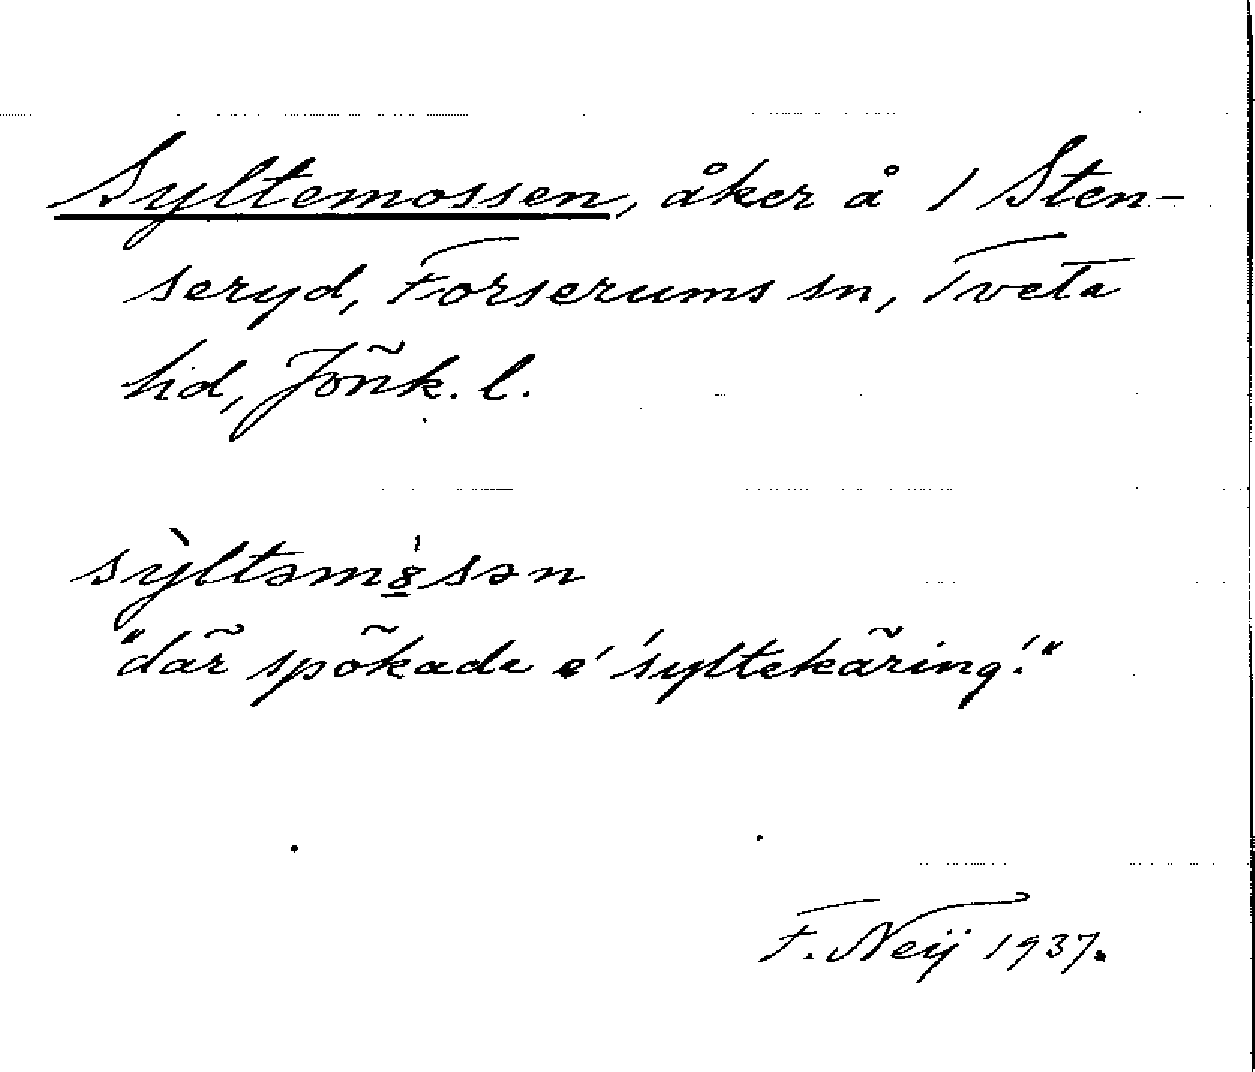 Syltemossen, åker å 1 Sten-
seryd, Forserums sn, Tveta
hd, Jönk. l.
sỳltəm8̲́sən
"där spökade e' 'syltekäring'."
F. Neij 1937.